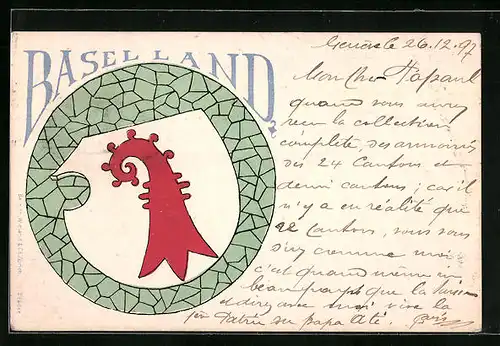 BASELLAND
Genève 26.12.97
Mon Cher Papaul
quand vous aurez
reçu la collection
complète, des armoiries
des 24 Cantons et
demi cantons; car il
n'y a en réalité que
22 Cantons, vous vous
direz comme moi
c'est quand même un
beau pays que la Suisse
et direz avec moi vive la
Patrie du papa